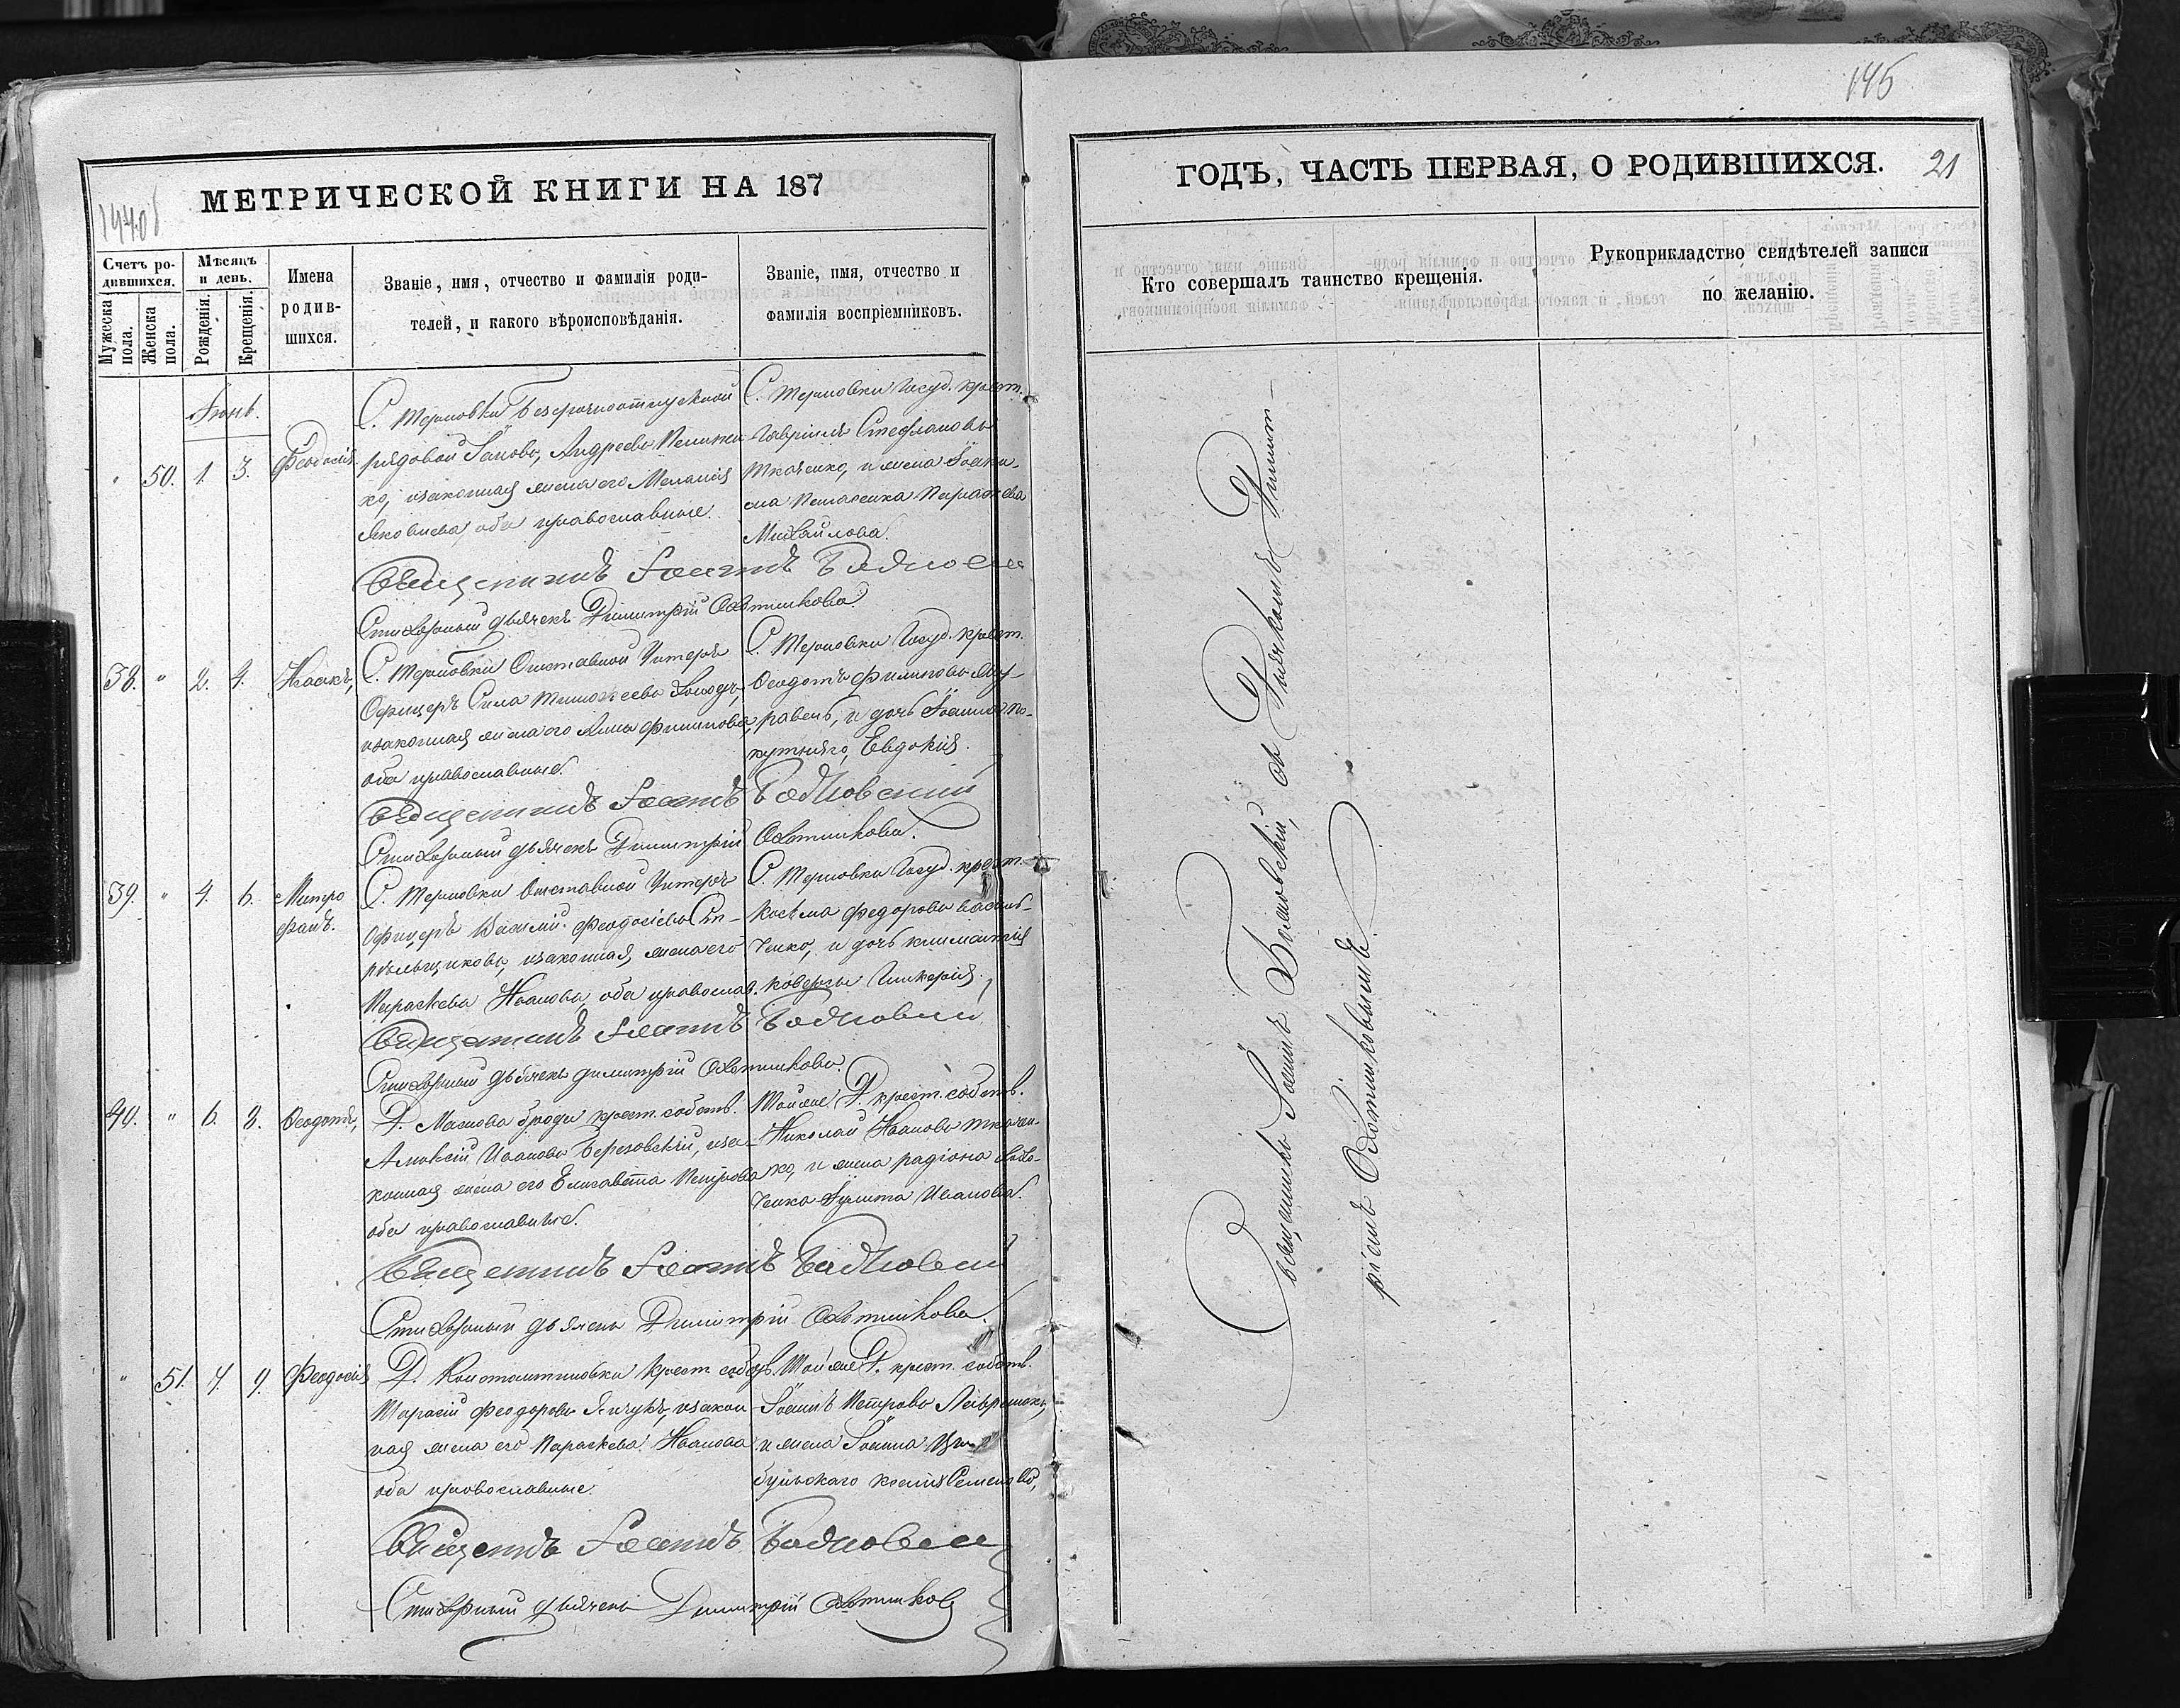 МЕТРИЧЕСКОЙ КНИГИ НА 187
Счетъ ро-
дившихся.
Мужеска
пола.
Женска
пола.
Мѣсяцъ
и день.
Рожденія.
Крещенія.
Имена
родив-
шихся.
Званіе, имя, отчество и фамилія роди-
телей, и какого вѣроисповѣданія.
Званіе, имя, отчество и
фамилія воспріемниковъ.
Іюнь.
" 50. 1. 3. Феодосія
С. Терновки безсрочноотпускной
рядовой Андреевъ
и законная жена его Меланія
Яковлева, оба православные.
С. Терновки Госуд. крест.
Гавріилъ Стефановъ
Ткаченко, и жена Іоаки-
ма Параскева
Михайлова.
Священникъ Іоаннъ
Стихарный дьячекъ Димитрій Охотниковъ.
38. " 2. 4. Исаакъ,
С. Терновки Отставной Унтеръ
Офицеръ Сила Тимофеевъ
и законная жена его Анна Филиппова,
оба православные.
С. Терновки Госуд. крест.
Феодотъ Филиповъ Жу-
равель, и дочь Іоанна По-
кутнего, Евдокія.
Священникъ Іоаннъ
Стихарный дьячекъ Димитрій Охотниковъ.
39. " 4. 6. Митро
фанъ.
С. Терновки Отставной Унтеръ
Офицеръ Василій Феодосіевъ Ст-
рѣльщиковъ, и законная жена его
Параскева Иванова, оба православ.
С. Терновки Госуд. крест.
Косьма Федоровъ Василь-
ченко, и дочь Климентія
Коверги Гликерія.
Священникъ Іоаннъ
Стихарный дьячекъ Димитрій Охотниковъ.
40. " 6. 8. Феодотъ,
Д. крест. собств.
Алексій Ивановъ Березовскій, и за-
конная жена его Елисавета Петрова
оба православные.
Той же Д. крест. собств.
Николай Ивановъ Ткачен-
ко, и жена Родіона
Іулита Иванова.
Священникъ Іоаннъ
Стихарный дьячекъ Димитрій Охотниковъ.
" 51. 7. 9. Феодосія
Д. Константиновки крест. собств.
Тарасій Феодоровъ и закон-
ная жена его Параскева Иванова
оба православные.
Той же Д. крест. собств.
Іоаннъ Петровъ
и жена Іоанна Цы-
бульскаго Ксенія Семенова,
Священникъ Іоаннъ
Стихарный дьячекъ Димитрій Охотниковъ
146
ГОДЪ, ЧАСТЬ ПЕРВАЯ, О РОДИВШИХСЯ.
21
Кто совершалъ таинство крещенія.
Рукоприкладство свидѣтелей записи
по желанію.
Священникъ Іоаннъ съ Дьячкомъ Димит-
ріемъ Охотниковымъ.